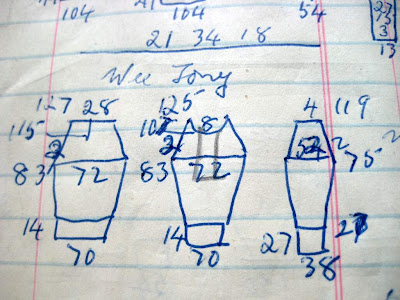 104 104 54
21 34 18
27
13
3
13
Wee Tony
127 28 125 4 119
115 8
2 2 52 2 2
83 72 83 72 75
14 14 27 27
70 70 38